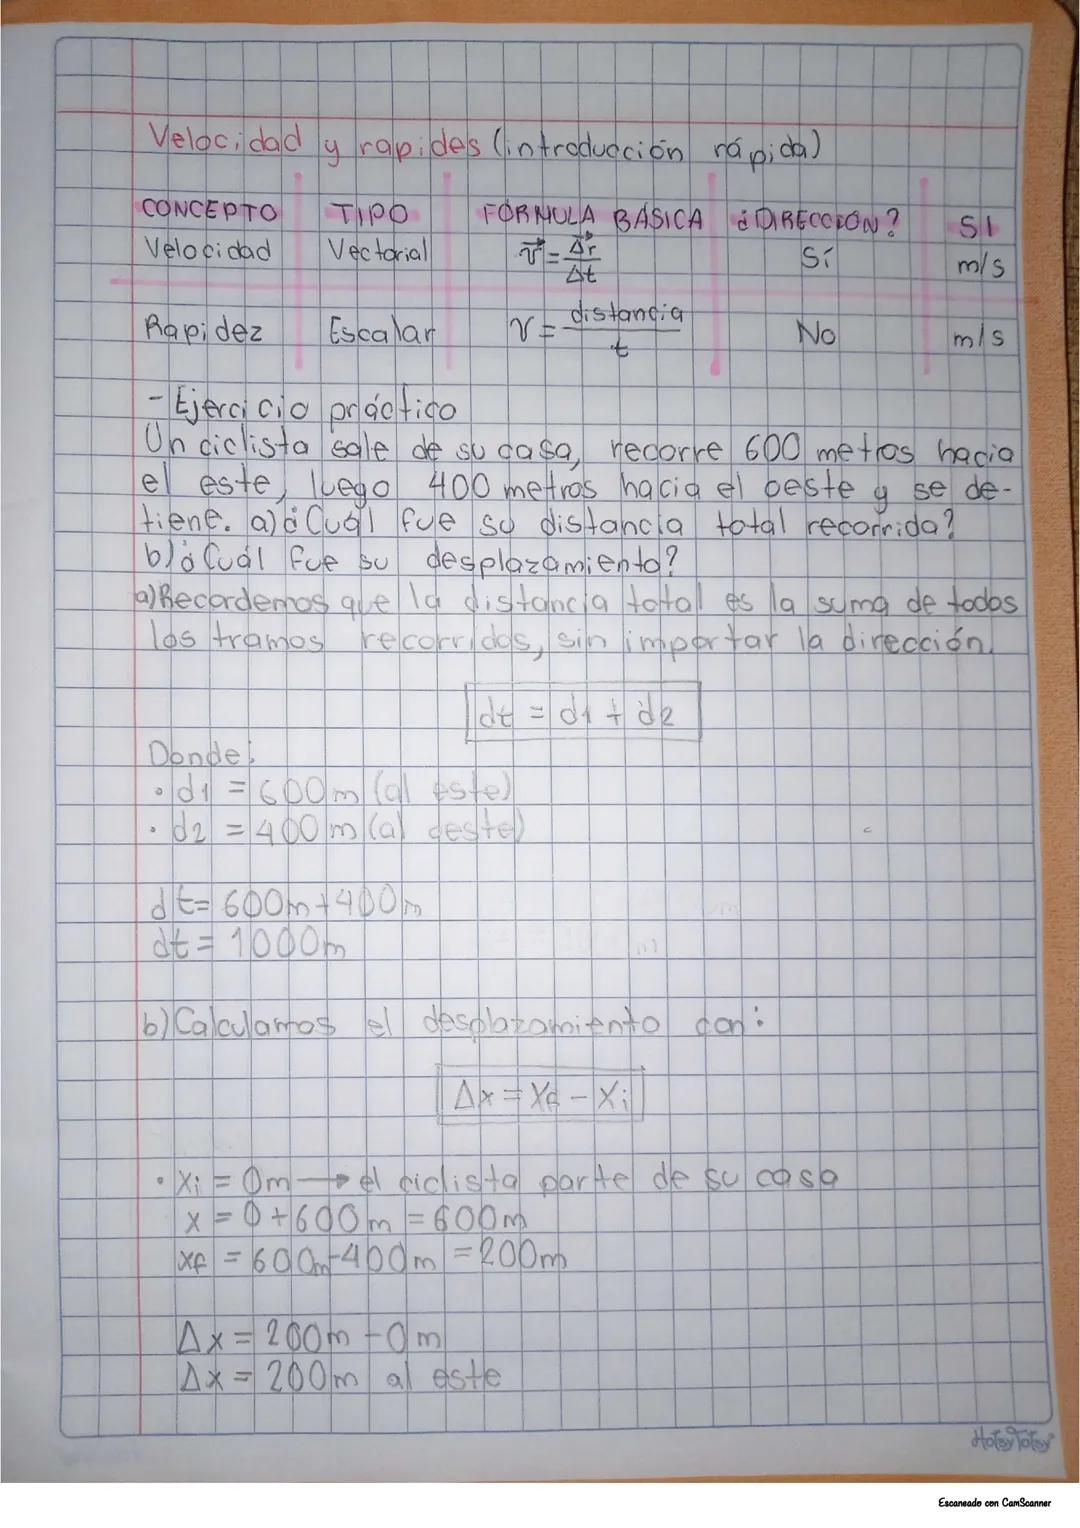 Velocidad y rapides (introducción rápida)
CONCEPTO TIPO FÓRMULA BÁSICA ¿DIRECCIÓN? SI
Velocidad Vectorial v⃗ = Δr⃗/Δt Sí m/s
Rapidez Escalar v = distancia/t No m/s
- Ejercicio práctico
Un ciclista sale de su casa, recorre 600 metros hacia
el este, luego 400 metros hacia el oeste y se de-
tiene. a) ¿Cuál fue su distancia total recorrida?
b) ¿Cuál fue su desplazamiento?
a) Recordemos que la distancia total es la suma de todos
los tramos recorridos, sin importar la dirección.
dt = d1 + d2
Donde:
• d1 = 600m (al este)
• d2 = 400m (al oeste)
dt = 600m + 400m
dt = 1000m
b) Calculamos el desplazamiento con:
Δx = xf - xi
• xi = 0m → el ciclista parte de su casa
x = 0 + 600m = 600m
xf = 600m - 400m = 200m
Δx = 200m - 0m
Δx = 200m al este
HotsyTotsy
Escaneado con CamScanner